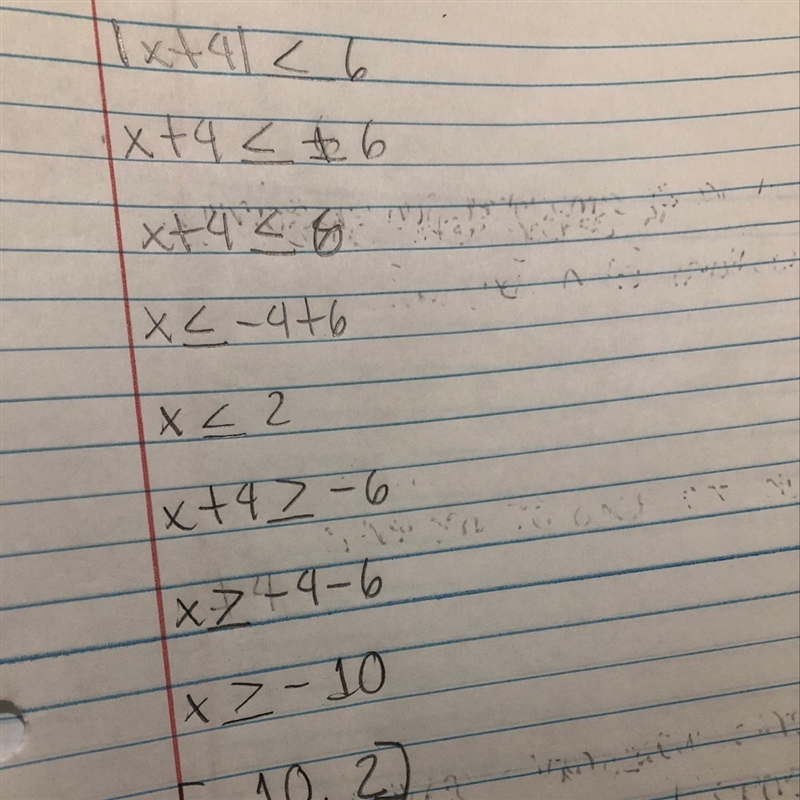 |x+4| ≤ 6
x+4 ≤ 6
x+4 ≤ 6
x ≤ -4+6
x ≤ 2
x+4 ≥ -6
x ≥ -4-6
x ≥ -10
10, 2]